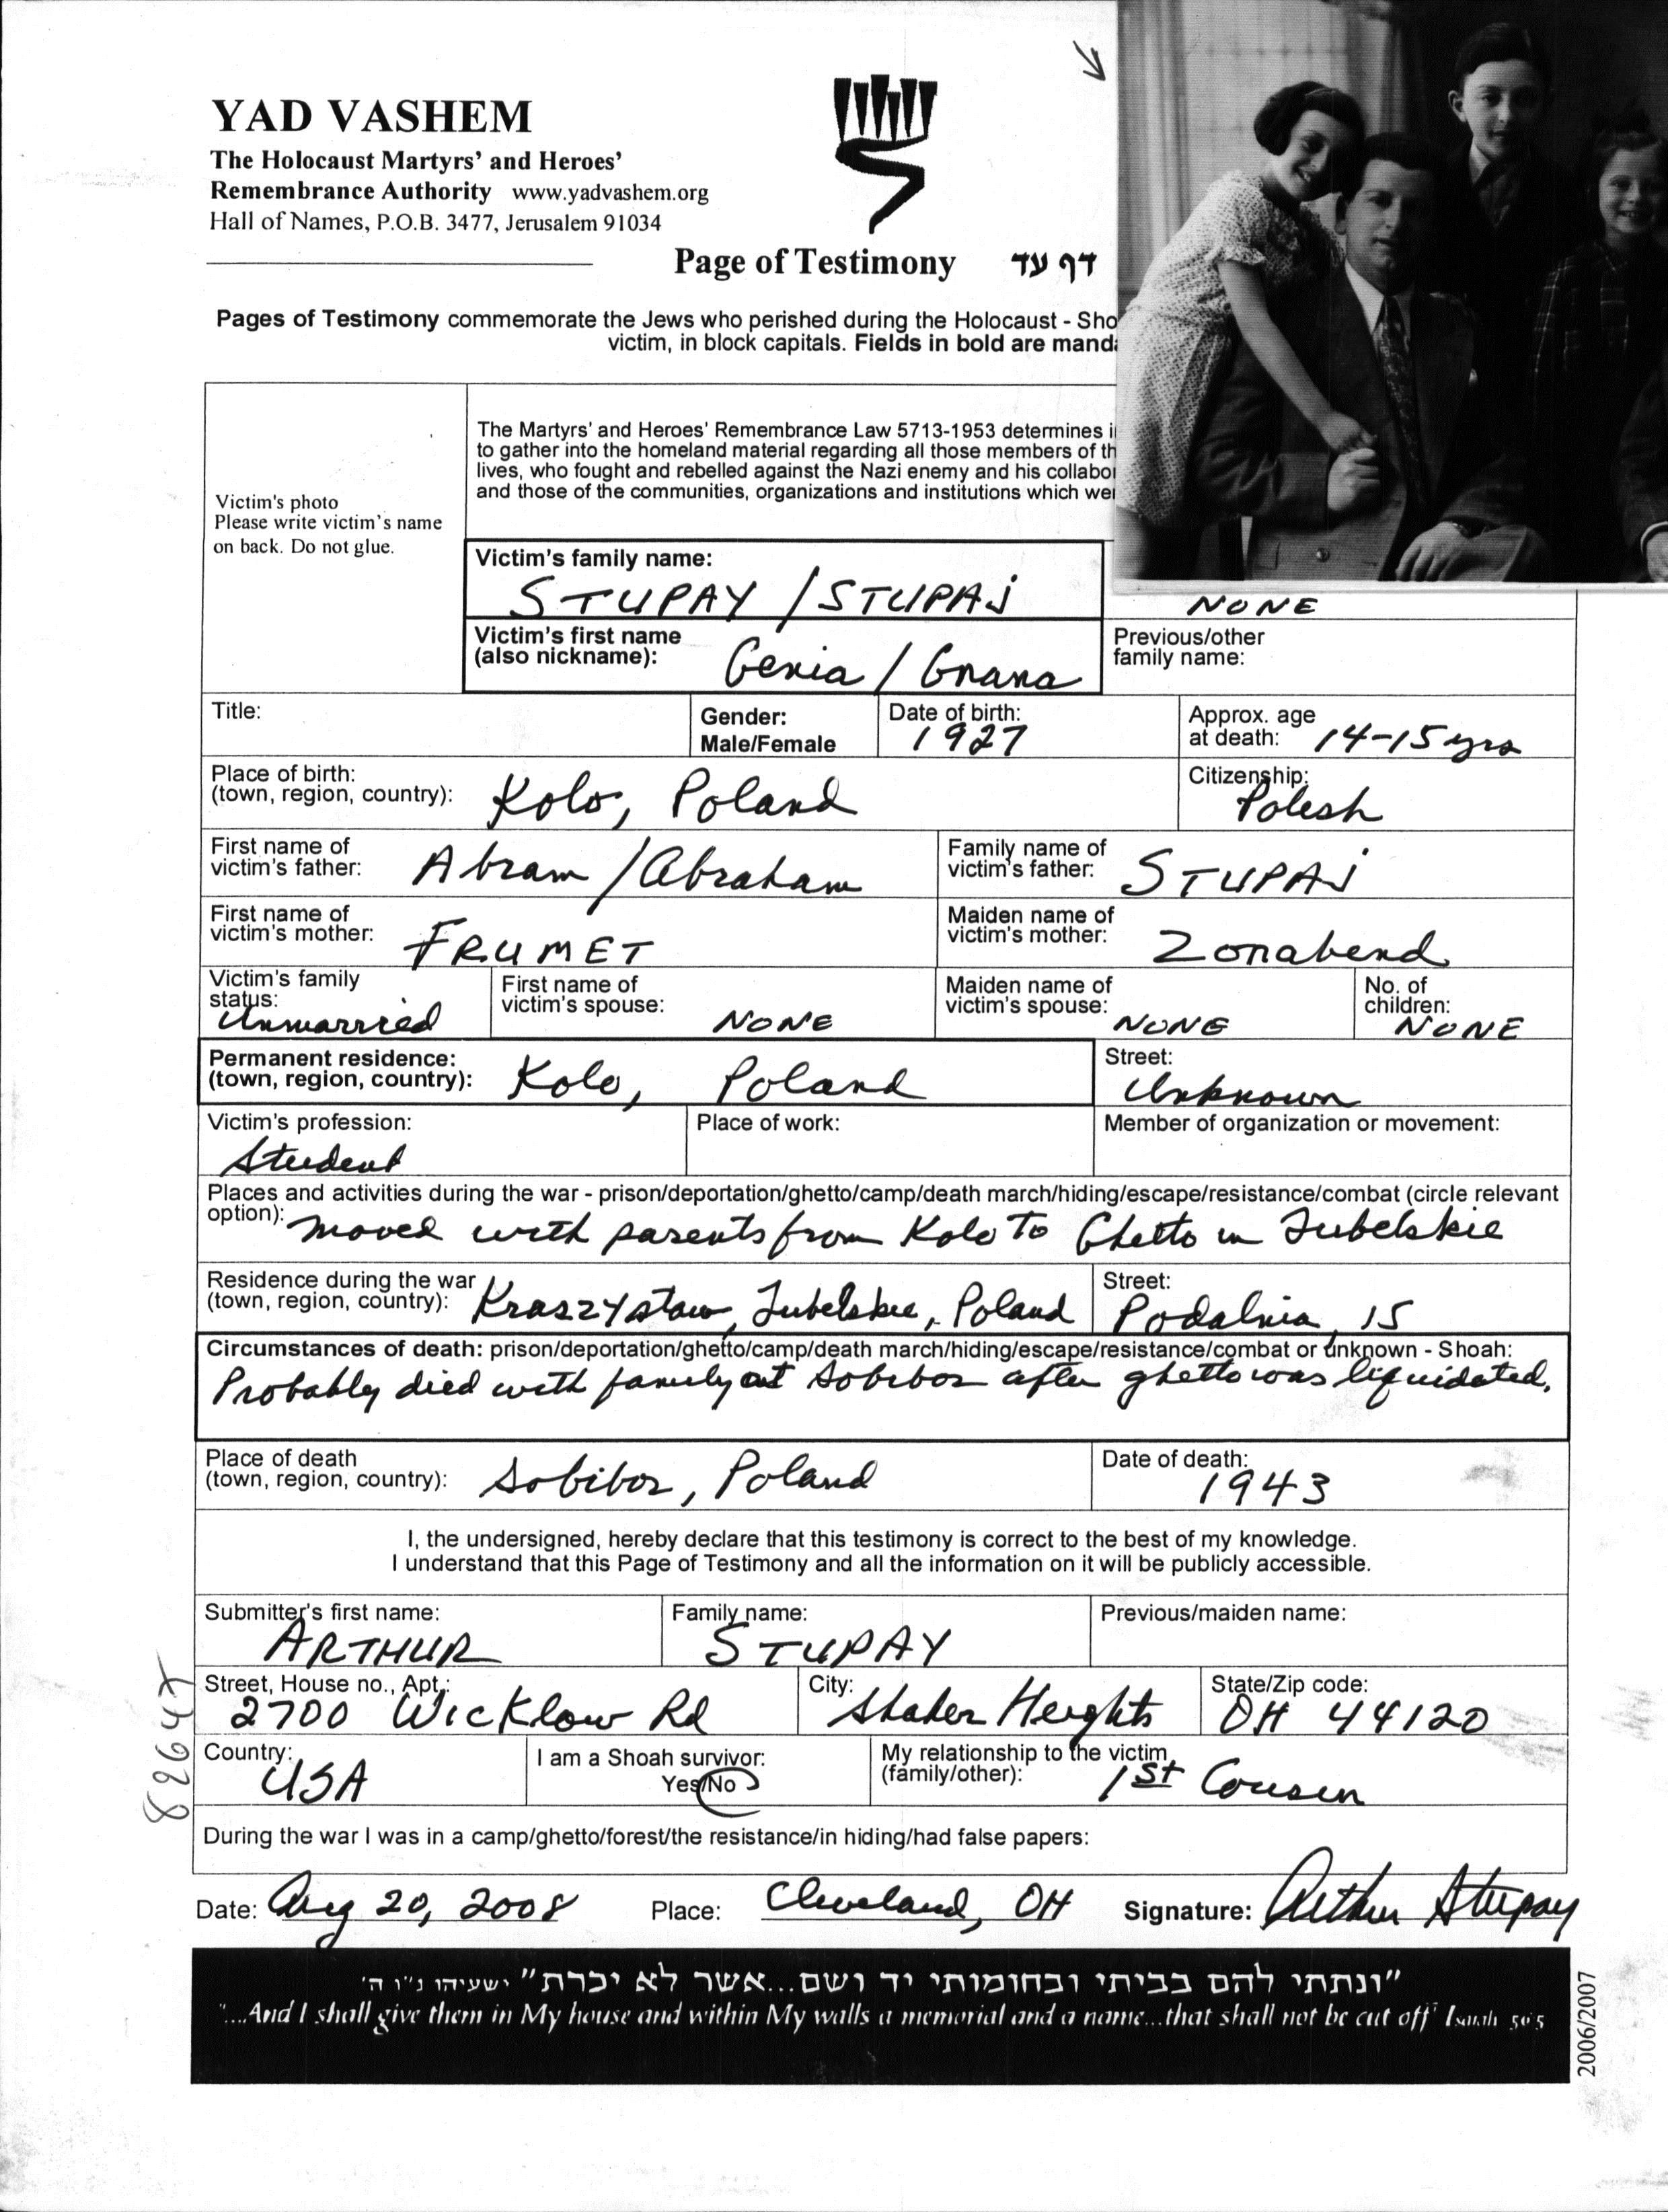 YAD VASHEM
The Holocaust Martyrs' and Heroes'
Remembrance Authority www.yadvashem.org
Hall of Names, P.O.B. 3477, Jerusalem 91034
Page of Testimony דף עד
Pages of Testimony commemorate the Jews who perished during the Holocaust - Sho
victim, in block capitals. Fields in bold are manda
Victim's photo
Please write victim's name
on back. Do not glue.
The Martyrs' and Heroes' Remembrance Law 5713-1953 determines i
to gather into the homeland material regarding all those members of th
lives, who fought and rebelled against the Nazi enemy and his collabo
and those of the communities, organizations and institutions which wer
Victim's family name:
STUPAY / STUPAJ
NONE
Victim's first name
(also nickname): Genia / Gnana
Previous/other
family name:
Title:
Gender:
Male/Female
Date of birth:
1927
Approx. age
at death: 14-15 yrs
Place of birth:
(town, region, country): Kolo, Poland
Citizenship:
Polish
First name of
victim's father: Abram / Abraham
Family name of
victim's father: STUPAJ
First name of
victim's mother: FRUMET
Maiden name of
victim's mother: Zonabend
Victim's family
status:
Unmarried
First name of
victim's spouse: NONE
Maiden name of
victim's spouse: NONE
No. of
children:
NONE
Permanent residence:
(town, region, country): Kolo, Poland
Street:
Unknown
Victim's profession:
Student
Place of work:
Member of organization or movement:
Places and activities during the war - prison/deportation/ghetto/camp/death march/hiding/escape/resistance/combat (circle relevant
option): moved with parents from Kolo To Ghetto in Lubelskie
Residence during the war
(town, region, country): Kraszystaw, Lubelskie, Poland
Street:
Podalnia, 15
Circumstances of death: prison/deportation/ghetto/camp/death march/hiding/escape/resistance/combat or unknown - Shoah:
Probably died with family at Sobibor after ghetto was liquidated.
Place of death
(town, region, country): Sobibor, Poland
Date of death:
1943
I, the undersigned, hereby declare that this testimony is correct to the best of my knowledge.
I understand that this Page of Testimony and all the information on it will be publicly accessible.
Submitter's first name:
ARTHUR
Family name:
STUPAY
Previous/maiden name:
Street, House no., Apt.:
2700 Wicklow Rd
City:
Shaker Heights
State/Zip code:
OH 44120
Country:
USA
I am a Shoah survivor:
Yes/No
My relationship to the victim
(family/other): 1st Cousin
During the war I was in a camp/ghetto/forest/the resistance/in hiding/had false papers:
Date: Aug 20, 2008 Place: Cleveland, OH Signature: Arthur Stupay
"ונתתי להם בביתי ובחומותי יד ושם...אשר לא יכרת" ישעיהו נ"ו ה'
"...And I shall give them in My house and within My walls a memorial and a name...that shall not be cut off" Isaiah 56:5
2006/2007